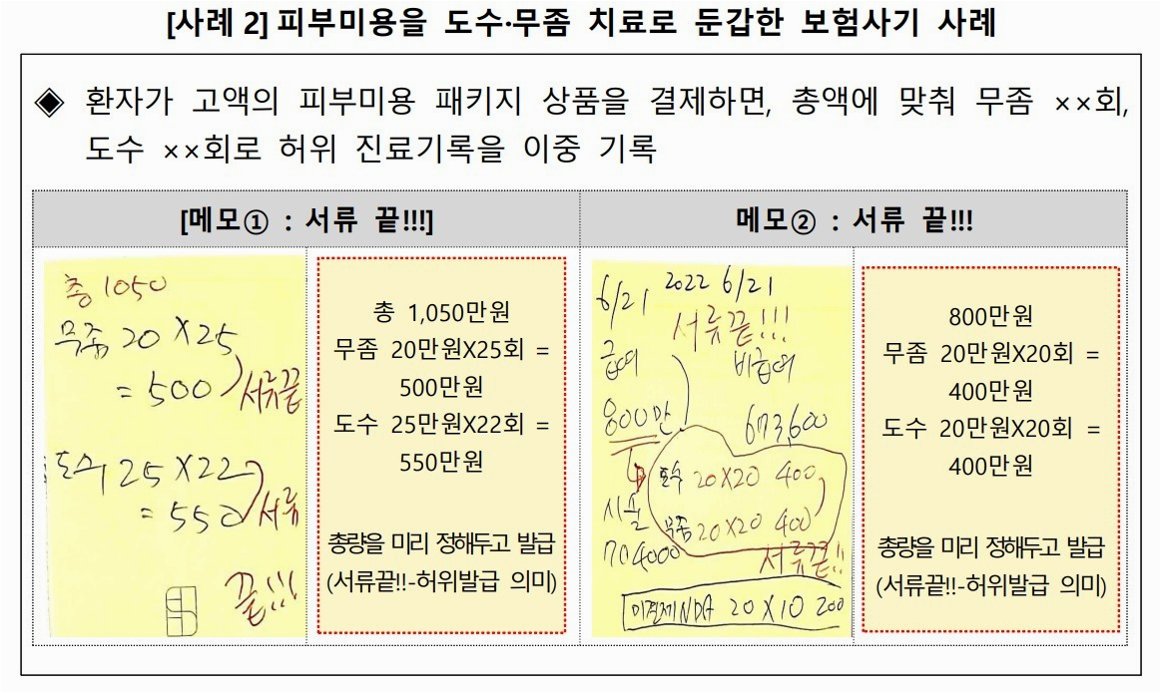 [사례 2] 피부미용을 도수·무좀 치료로 둔갑한 보험사기 사례
◈ 환자가 고액의 피부미용 패키지 상품을 결제하면, 총액에 맞춰 무좀 ××회,
도수 ××회로 허위 진료기록을 이중 기록
[메모① : 서류 끝!!!]
총 1050
무좀 20 X 25
= 500 서류끝
도수 25 X 22
= 550 서류
끝!!!
총 1,050만원
무좀 20만원X25회 =
500만원
도수 25만원X22회 =
550만원
총량을 미리 정해두고 발급
(서류끝!!-허위발급 의미)
메모② : 서류 끝!!!
6/21 2022 6/21
서류끝!!!
급여 비급여
800만 673,600
도수 20X20 400
시술
무좀 20X20 400
704000 서류끝!!
미결제NDA 20 X 10 200
800만원
무좀 20만원X20회 =
400만원
도수 20만원X20회 =
400만원
총량을 미리 정해두고 발급
(서류끝!!-허위발급 의미)